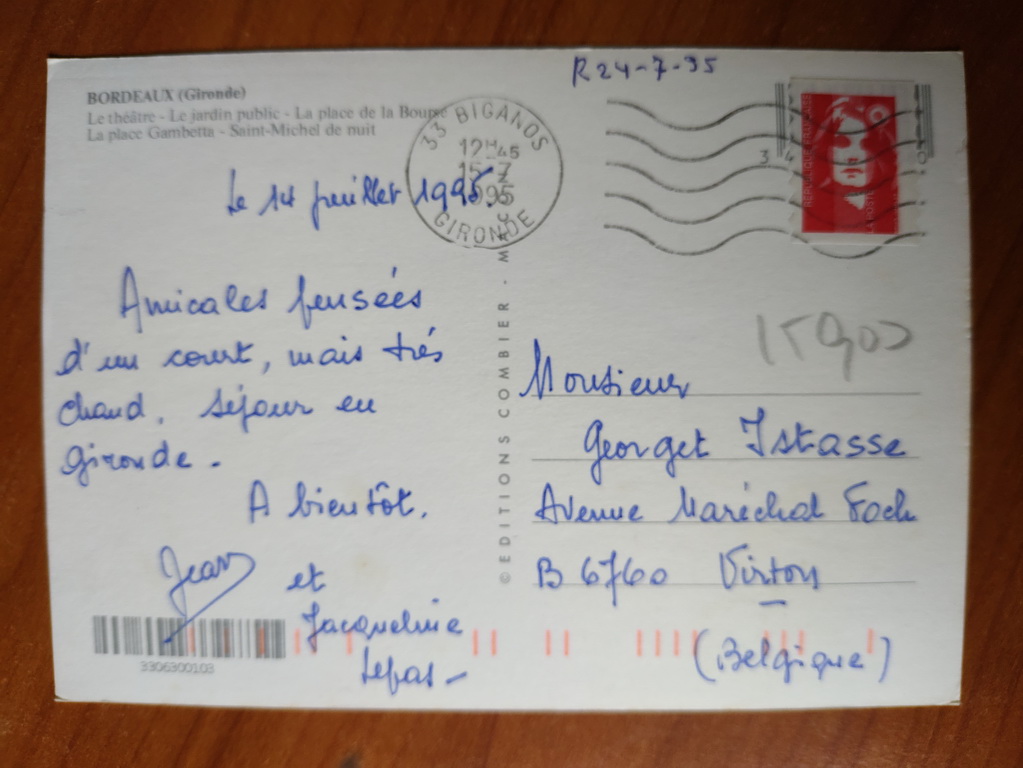 R 24-7-95
BORDEAUX (Gironde)
Le théâtre - Le jardin public - La place de la Bourse
La place Gambetta - Saint-Michel de nuit
33 BIGANOS
12H45
15-7
1995
GIRONDE
Le 14 juillet 1995.
Amicales pensées
d'un court, mais très
chaud, séjour en
Gironde.
A bientôt.
Jean et
Jacqueline
Lepas
3306300103
© EDITIONS COMBIER - M
RÉPUBLIQUE FRANÇAISE
LA POSTE
Monsieur
Georget Istasse
Avenue Maréchal Foch
B 6760 Virton
(Belgique)